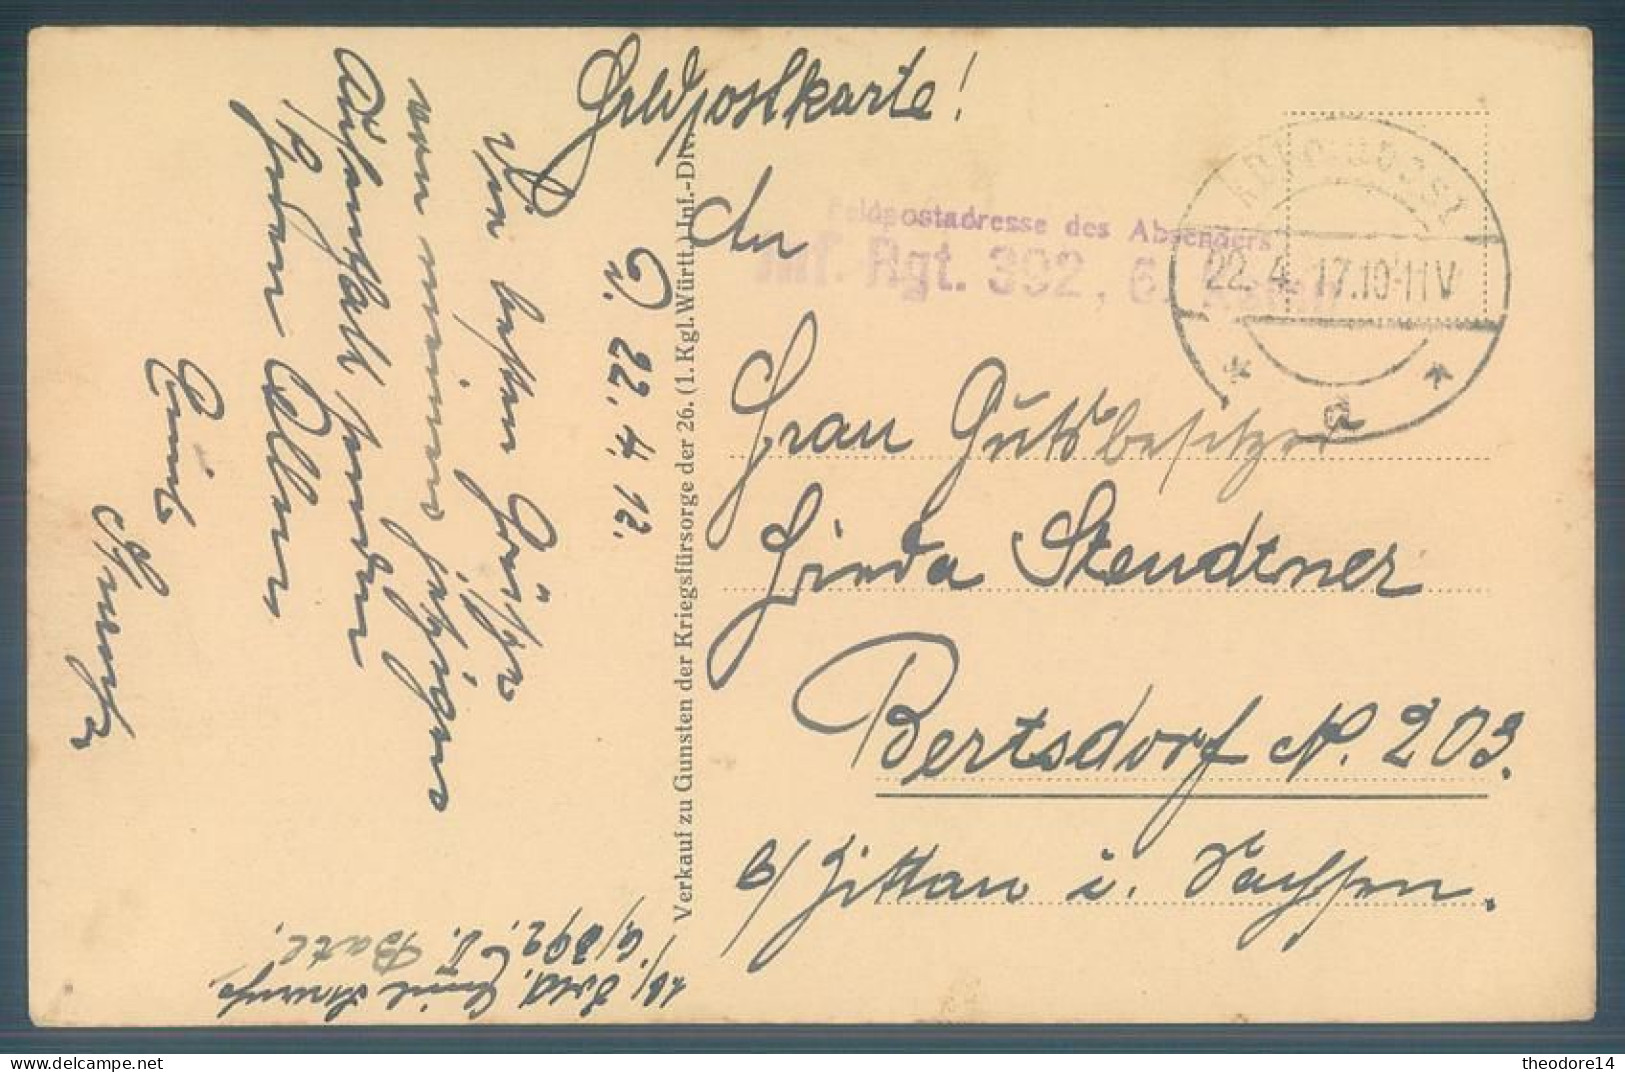 Feldpostkarte!
An
Feldpostadresse des Absenders
Inf. Rgt. 392, 6.
22. 4. 17. 10-11 V
a
Frau Gutsbesitzer
Frieda Steudtner
Bertsdorf N. 203.
b/ Zittau i. Sachsen.
Verkauf zu Gunsten der Kriegsfürsorge der 26. (1. Kgl. Württ.) Inf.-Div.
22. 4. 17.
Die besten Grüße
von meinem jetzigen
Aufenthalt senden
Ihnen Allen
Emil
6/392. Batl.
Emil
theodore14